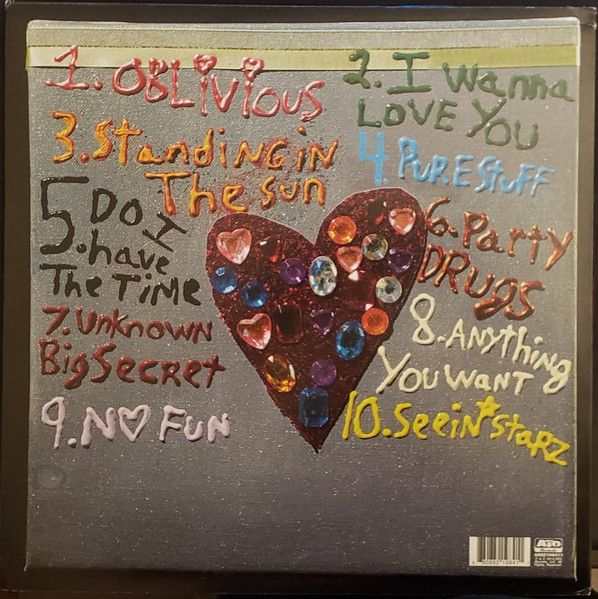 1. OBLiViOUS
2. I Wanna
LOVE YOU
3. StandiNG iN
The Sun
4. PURE Stuff
5. DO I
have
The TiME
6. Party
DRUGS
7. Unknown
Big Secret
8. ANYthing
You Want
9. N♡ FUN
10. Seein★StaRZ
ATO